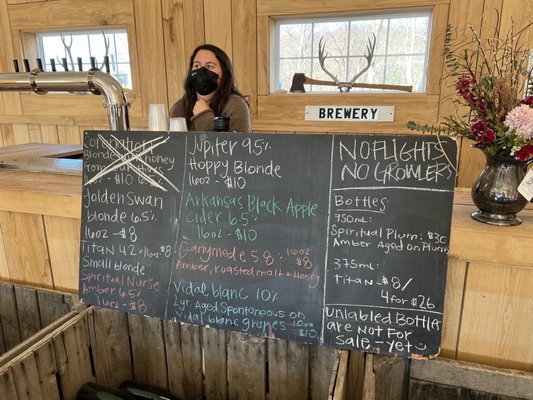 BREWERY
Blonde w/ honey
oz - $10
Golden Swan
blonde 6.5%
16oz - $8
Titan 4.2% 16oz $8
Small blonde
Spiritual Nurse
Amber 6.5% $8
Jupiter 9.5%
Hoppy Blonde
16oz - $10
Arkansas Black Apple
Cider 6.5%
16oz - $10
Ganymede 5.8% 16oz $8
Amber, roasted malt + Honey
Vidal blanc 10%
2yr. Aged Spontaneous on
Vidal blanc grapes 10oz $10
NO FLIGHTS
NO GROWLERS
Bottles:
750mL:
Spiritual Plum: $30
Amber Aged on Plums
375mL:
Titan - $8/
4 for $26
Unlabeled Bottles
are Not For
Sale - yet